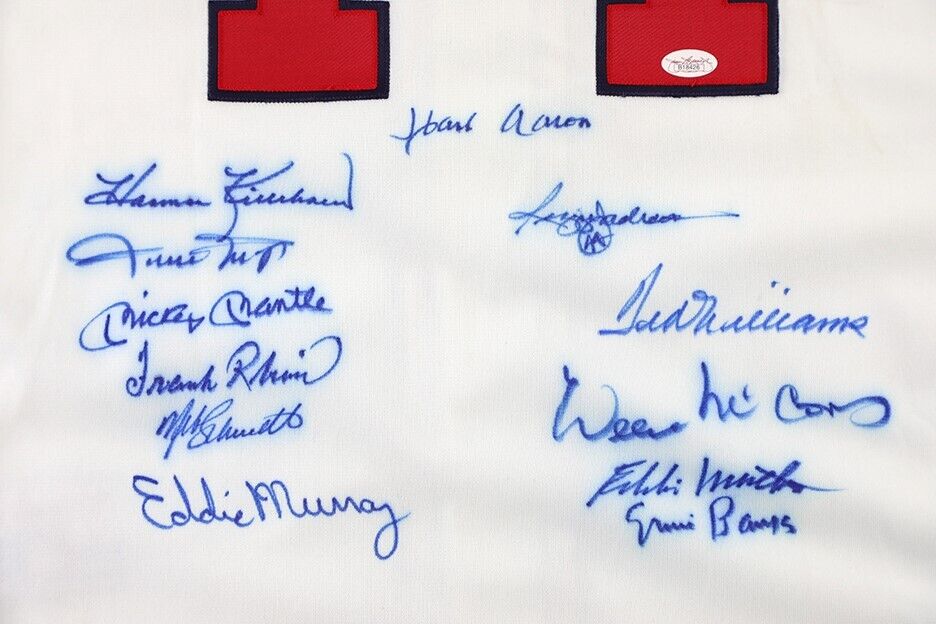 B18426
Hank Aaron
Harmon Killebrew
Reggie Jackson
Willie Mays
Ted Williams
Mickey Mantle
Frank Robinson
Willie McCovey
Mike Schmidt
Eddie Mathews
Eddie Murray
Ernie Banks